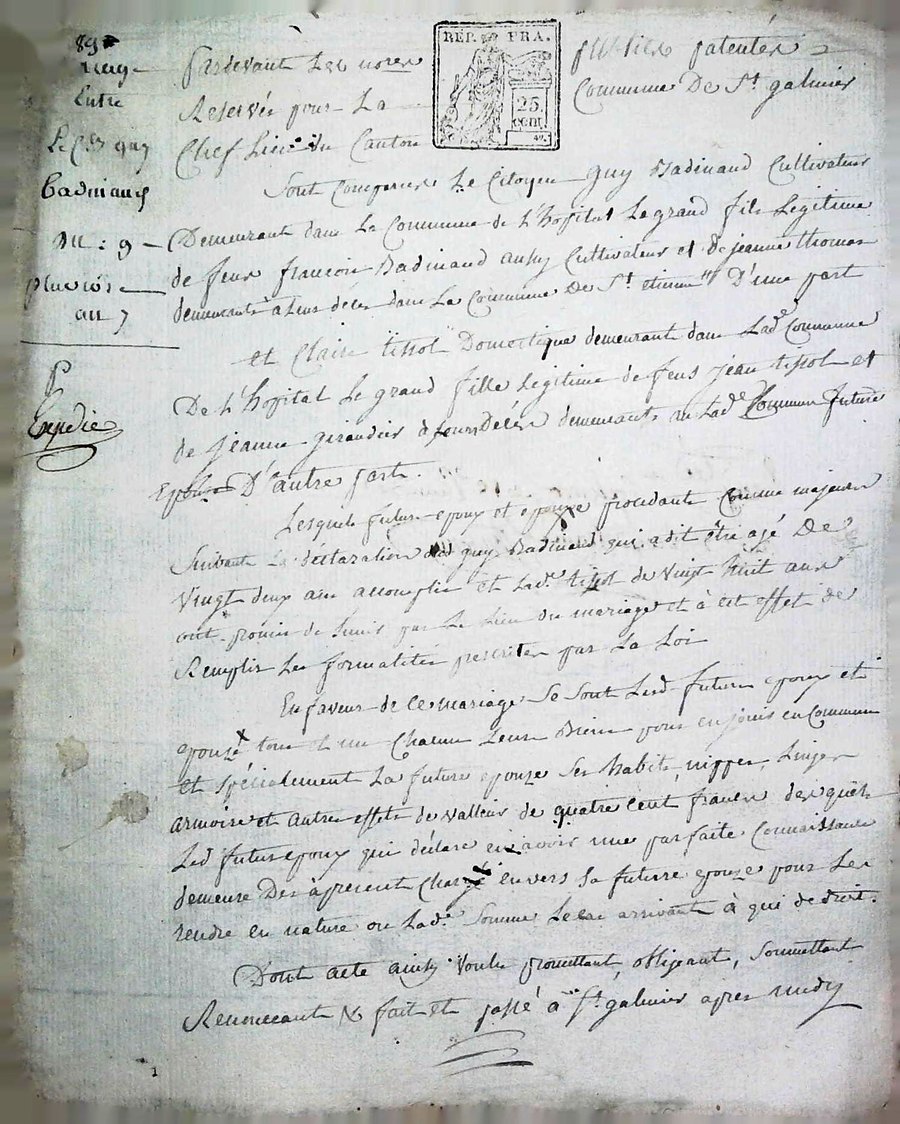 89
mariage
Entre
Le Cen guy
badinand
Du : 9
pluviose
an 7
P
Expedié
REP. FRA.
25.
CEN.
Pardevant Les nores publics patentés
Reservés pour La Commune De St galmier
Chef Lieu du Canton
Sont Comparus Le Citoyen guy Badinand Cultivateur
Demeurant dans La Commune de L'hopital Le grand fils Legitime
de feux francois Badinand aussy Cultivateur et de jeanne thomas
demeurants a Leur décès dans La Commune De St etienne D'une part
et Claire tissot Domestique demeurant dans Lade Commune
De L'hopital Le grand fille Legitime de feus jean tissot et
de jeanne giraudier à Leurs Décès demeurants en Lade Commune future
Epouse D'autre part.
Lesquels futur epoux et epouze procedants Comme majeurs
Suivant La déclaration dud guy Badinand qui a dit être agé De
Vingt deux ans accomplis et Lade tissot de Vingt huit ans
ont promis de S'unir par Le Lien du mariage et à cet effet de
Remplir Les formalités prescrites par La Loi
En faveur de Ce mariage Se Sont Lesd futurs epoux et
epouze tous et un Chacun Leurs Biens pour en jouir en Commun
et Spécialement La future epouze Ses habits, nippes, Linges
armoire et autres effets de valleur de quatre Cent francs desquels
Led futur epoux qui déclare en avoir une parfaite Connaissance
demeure Des àpresent Chargé envers Sa future epouze pour Les
rendre en nature ou Lade Somme Le Cas arrivant à qui de droit.
Dont acte ainsy voulu promettant, obligeant, Soumettant
Renonceant & fait et passé à St galmier apres midy